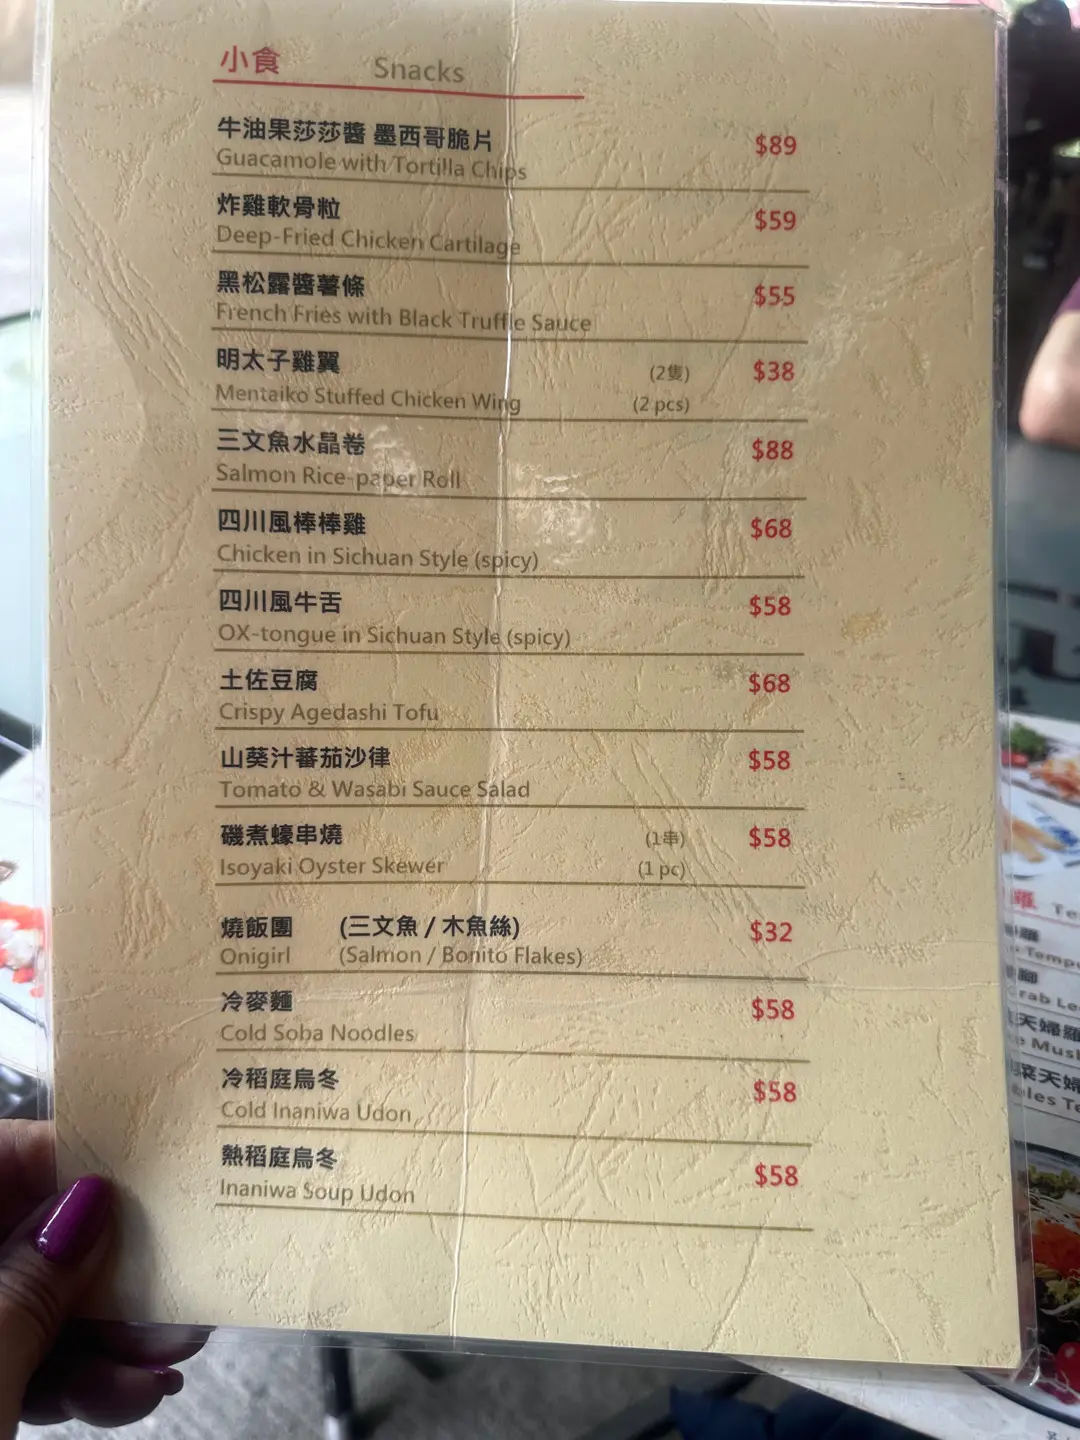 小食 Snacks
牛油果莎莎醬 墨西哥脆片 $89
Guacamole with Tortilla Chips
炸雞軟骨粒 $59
Deep-Fried Chicken Cartilage
黑松露醬薯條 $55
French Fries with Black Truffle Sauce
明太子雞翼 (2隻) $38
Mentaiko Stuffed Chicken Wing (2 pcs)
三文魚水晶卷 $88
Salmon Rice-paper Roll
四川風棒棒雞 $68
Chicken in Sichuan Style (spicy)
四川風牛舌 $58
OX-tongue in Sichuan Style (spicy)
土佐豆腐 $68
Crispy Agedashi Tofu
山葵汁蕃茄沙律 $58
Tomato & Wasabi Sauce Salad
磯煮蠔串燒 (1串) $58
Isoyaki Oyster Skewer (1 pc)
燒飯團 (三文魚 / 木魚絲) $32
Onigirl (Salmon / Bonito Flakes)
冷麥麵 $58
Cold Soba Noodles
冷稻庭烏冬 $58
Cold Inaniwa Udon
熱稻庭烏冬 $58
Inaniwa Soup Udon